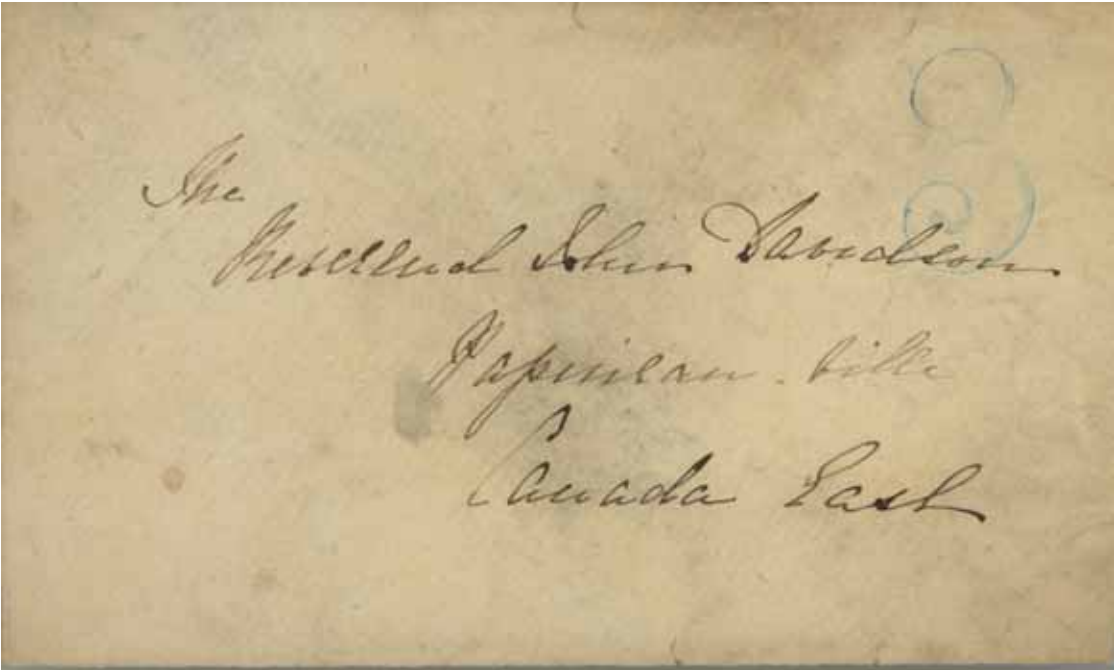 3
The
Reverend John Davidson
Papineau. ville
Canada East